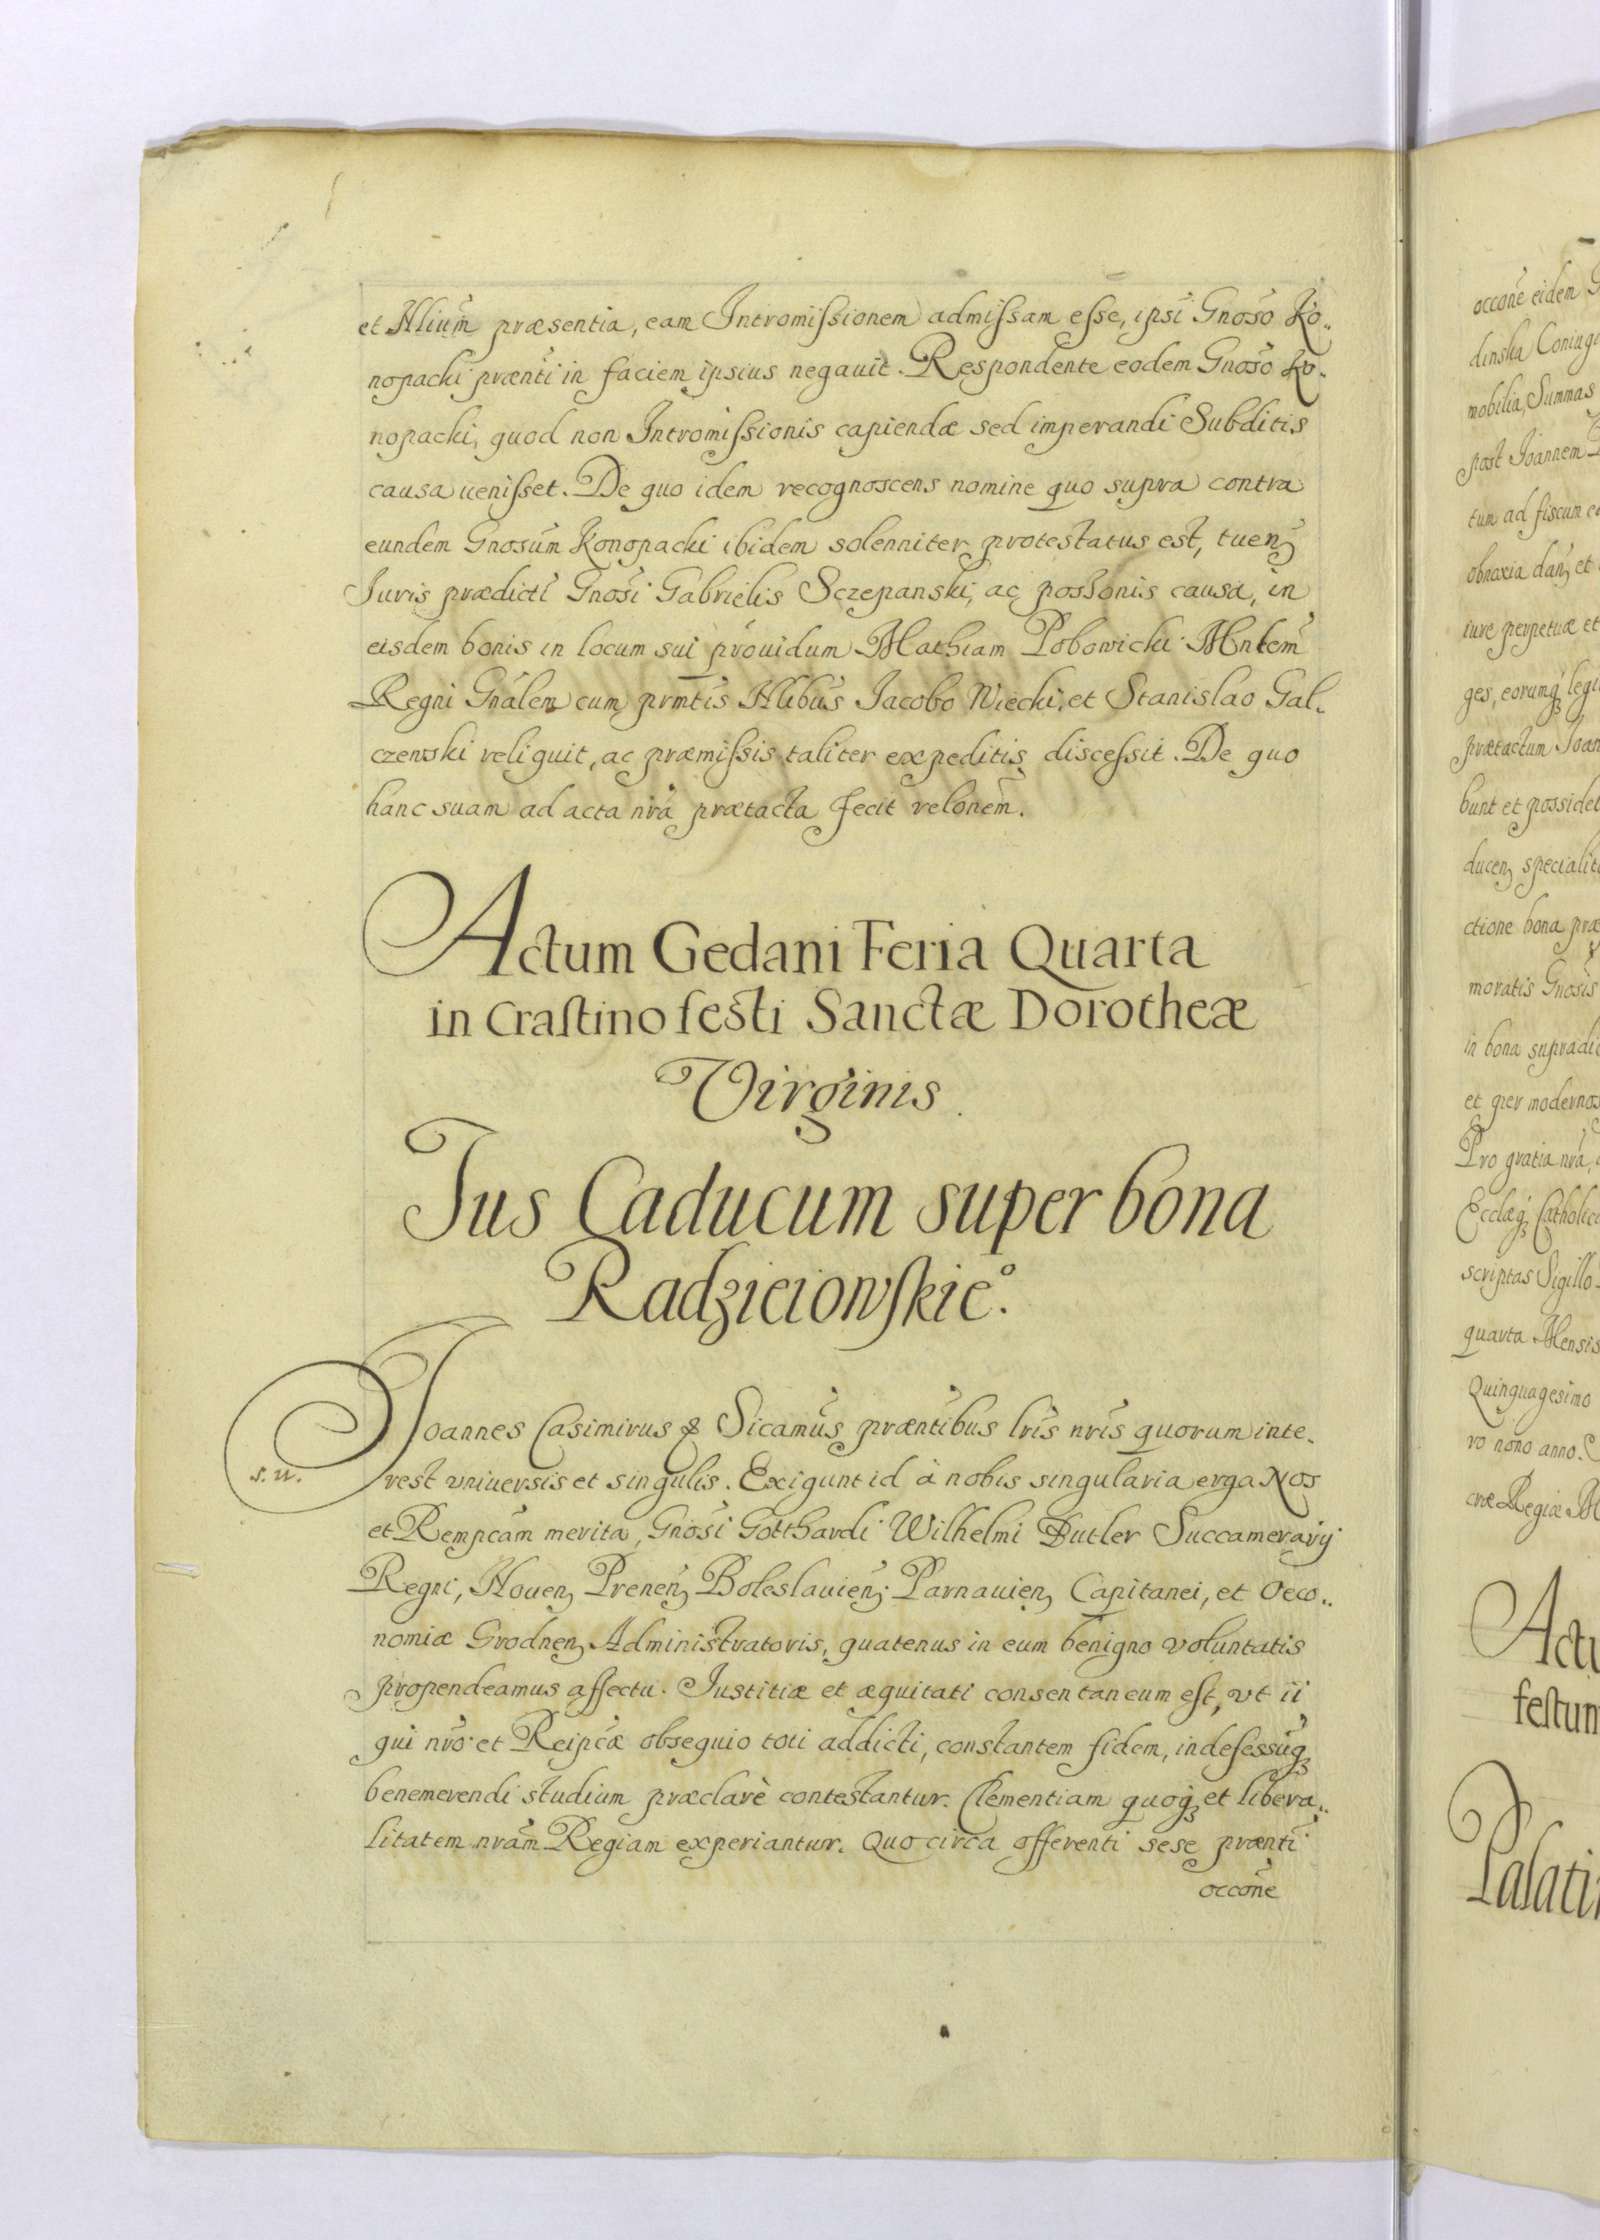 et Nlium̃ præsentia, eam Intromissionem admissam esse, ipsi Gnoso Ko-
nopacki præntĩ in faciem ipsius negauit. Respondente eodem Gnoso Ko-
nopacki, quod non Intromissionis capiendæ sed imperandi Subditis
causa uenisset. De quo idem recognoscens nomine quo supra contra
eundem Gnosum̃ Konopacki ibidem solenniter protestatus est, tuen̄
Iuris prædicti Gnosi Gabrielis Sczepanski, ac possonis causa, in
eisdem bonis in locum sui prouidum Mathiam Pobowicki Mnlem̃
Regni Gnãlem cum prmtis Nlibus Jacobo Wiecki, et Stanislao Gal-
czewski reliquit, ac præmissis taliter expeditis discessit. De quo
hanc suam ad acta nrã prætacta fecit relonem̃.
Actum Gedani Feria Quarta
in Craſtino feſti Sanctæ Dorotheæ
Virginis
Jus Caducum super bona
Radzieiowſkie°.
Joannes Casimirus & Sicamus̃ præntĩbus lrĩs nrĩs quorum inte-
s. u.
rest vniuersis et singulis. Exigunt id à nobis singularia erga Nos
et Rempcãm merita, Gnosi Gotthardi Wilhelmi Butler Succamerarij
Regni, Nouen̄ Prenen̄ Boleslauien̄ Parnauien̄ Capitanei, et Oeco-
nomiæ Grodnen̄ Administratoris, quatenus in eum benigno voluntatis
propendeamus affectu. Justitiæ et æquitati consentaneum eſt, vt ii
qui nrõ et Reipcæ obsequio toti addicti, constantem fidem, indefessũq̢
benemerendi studium præclarè contestantur. Clementiam quoq̢ et libera-
litatem nrãm Regiam experiantur. Quo circa offerenti sese præntĩ
occonẽ
occonẽ eidem
dinska Coniugi
mobilia, Summas
post Joannem
tum ad fiscum
obnoxia dan̄ et
iure perpetuæ et
ges, eorumq̢
prætactum Joan
bunt et possideb
ducen̄ specialit
ctione bona præ
moratis Gnosis
in bona supradi
et per modernos
Pro gratia nrã,
Ecclæq̢ Catholic
scriptas Sigillo
quarta Mensis
Quinquagesimo
vo nono anno.
cræ Regiæ M
Actu
feſtum
Palati